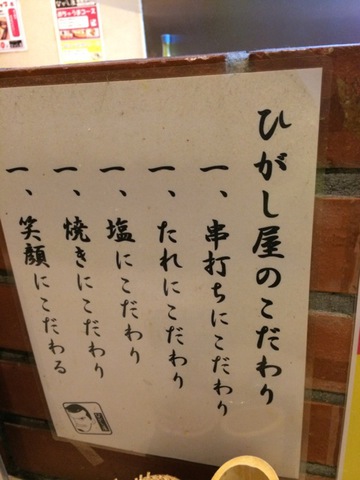 ひがし屋のこだわり
一、串打ちにこだわり
一、たれにこだわり
一、塩にこだわり
一、焼きにこだわり
一、笑顔にこだわる